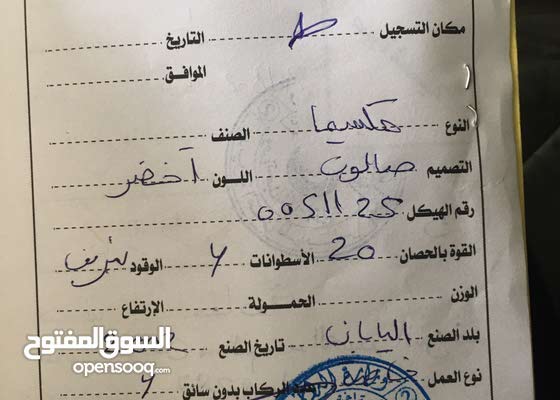 مكان التسجيل ط التاريخ
الموافق
النوع مكسيما الصنف
التصميم صالون اللون أخضر
رقم الهيكل 0051125
القوة بالحصان 20 الأسطوانات 6 الوقود
الوزن الحمولة الإرتفاع
بلد الصنع اليابان تاريخ الصنع
نوع العمل الركاب بدون سائق
السوق المفتوح
opensooq.com